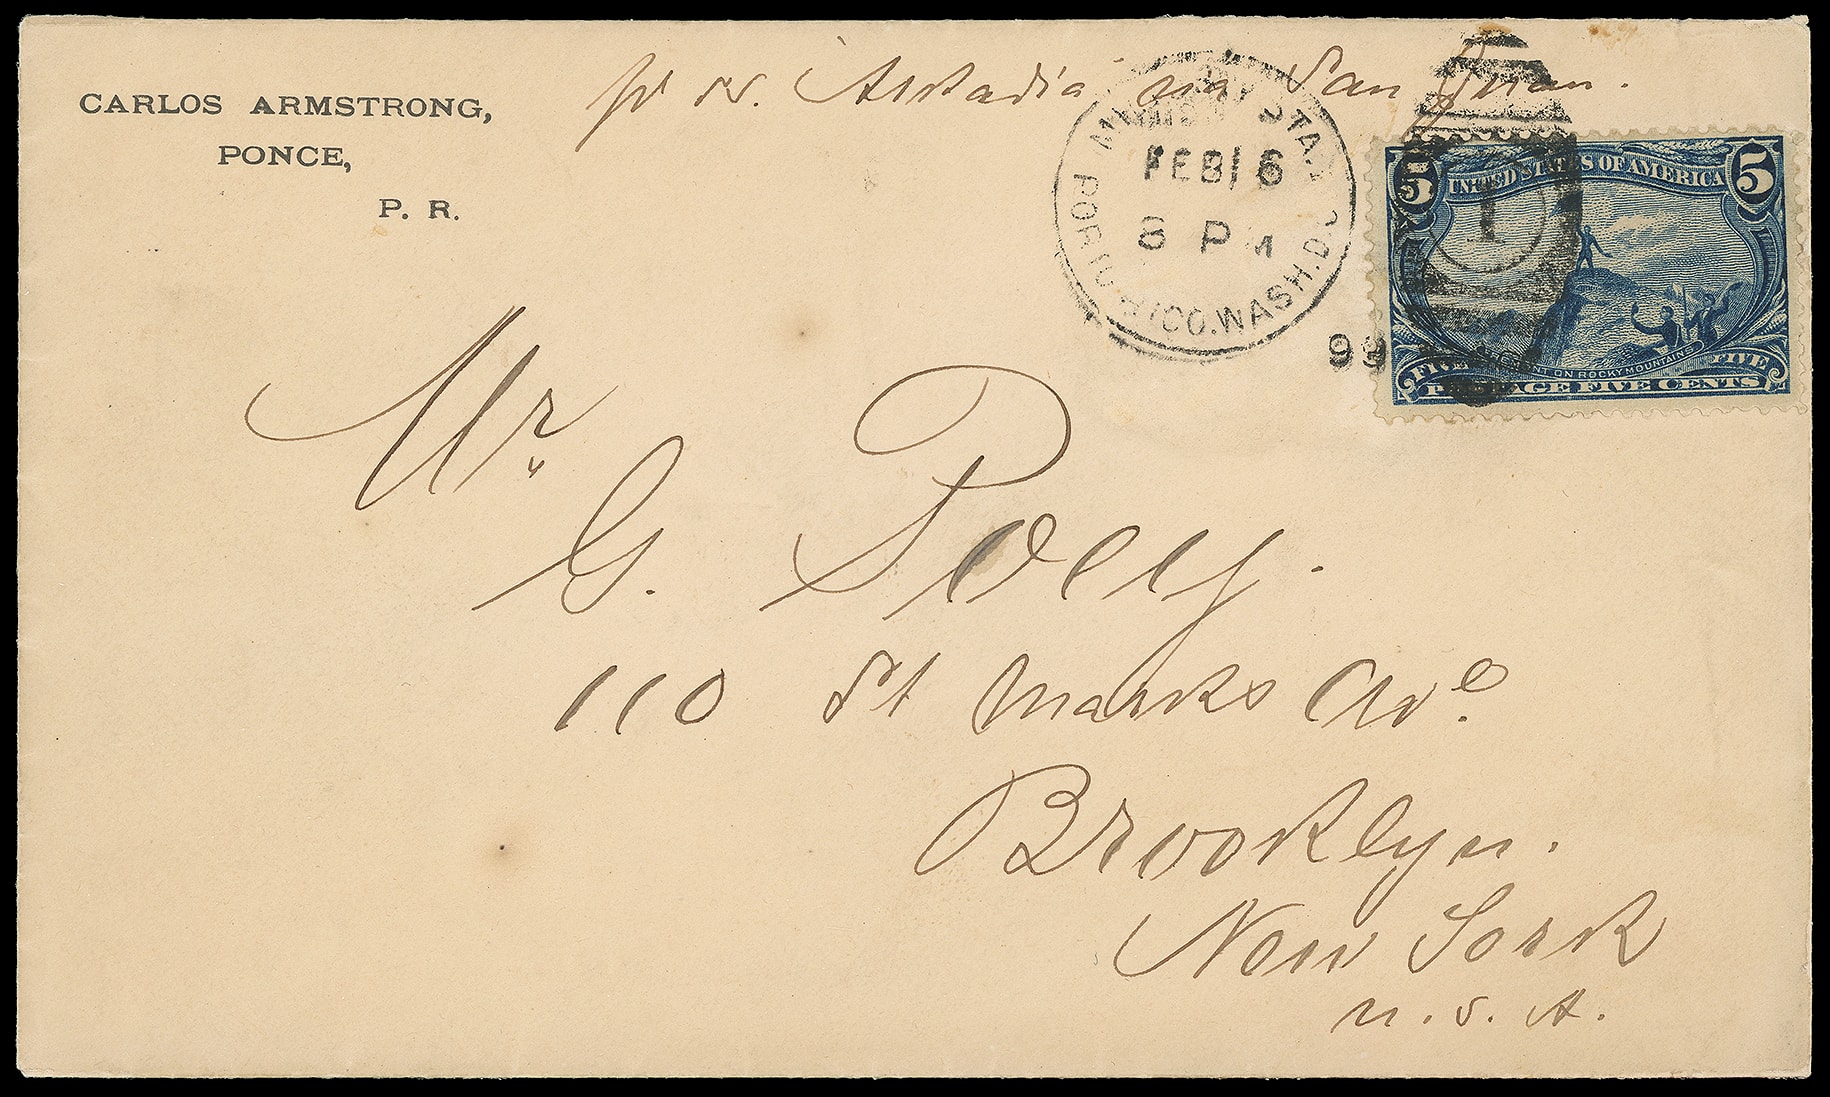 pr ss. Arkadia via San Juan.
CARLOS ARMSTRONG,
PONCE,
P. R.
MILITARY STA. 
FEB 16
8 PM
PORTO RICO. WASH. D.C.
99
1
5 UNITED STATES OF AMERICA 5
FREMONT ON ROCKY MOUNTAINS
FIVE FIVE
POSTAGE FIVE CENTS
Mr
G. Poey.
110 St Marks Ave.
Brooklyn.
New York
U. S. A.